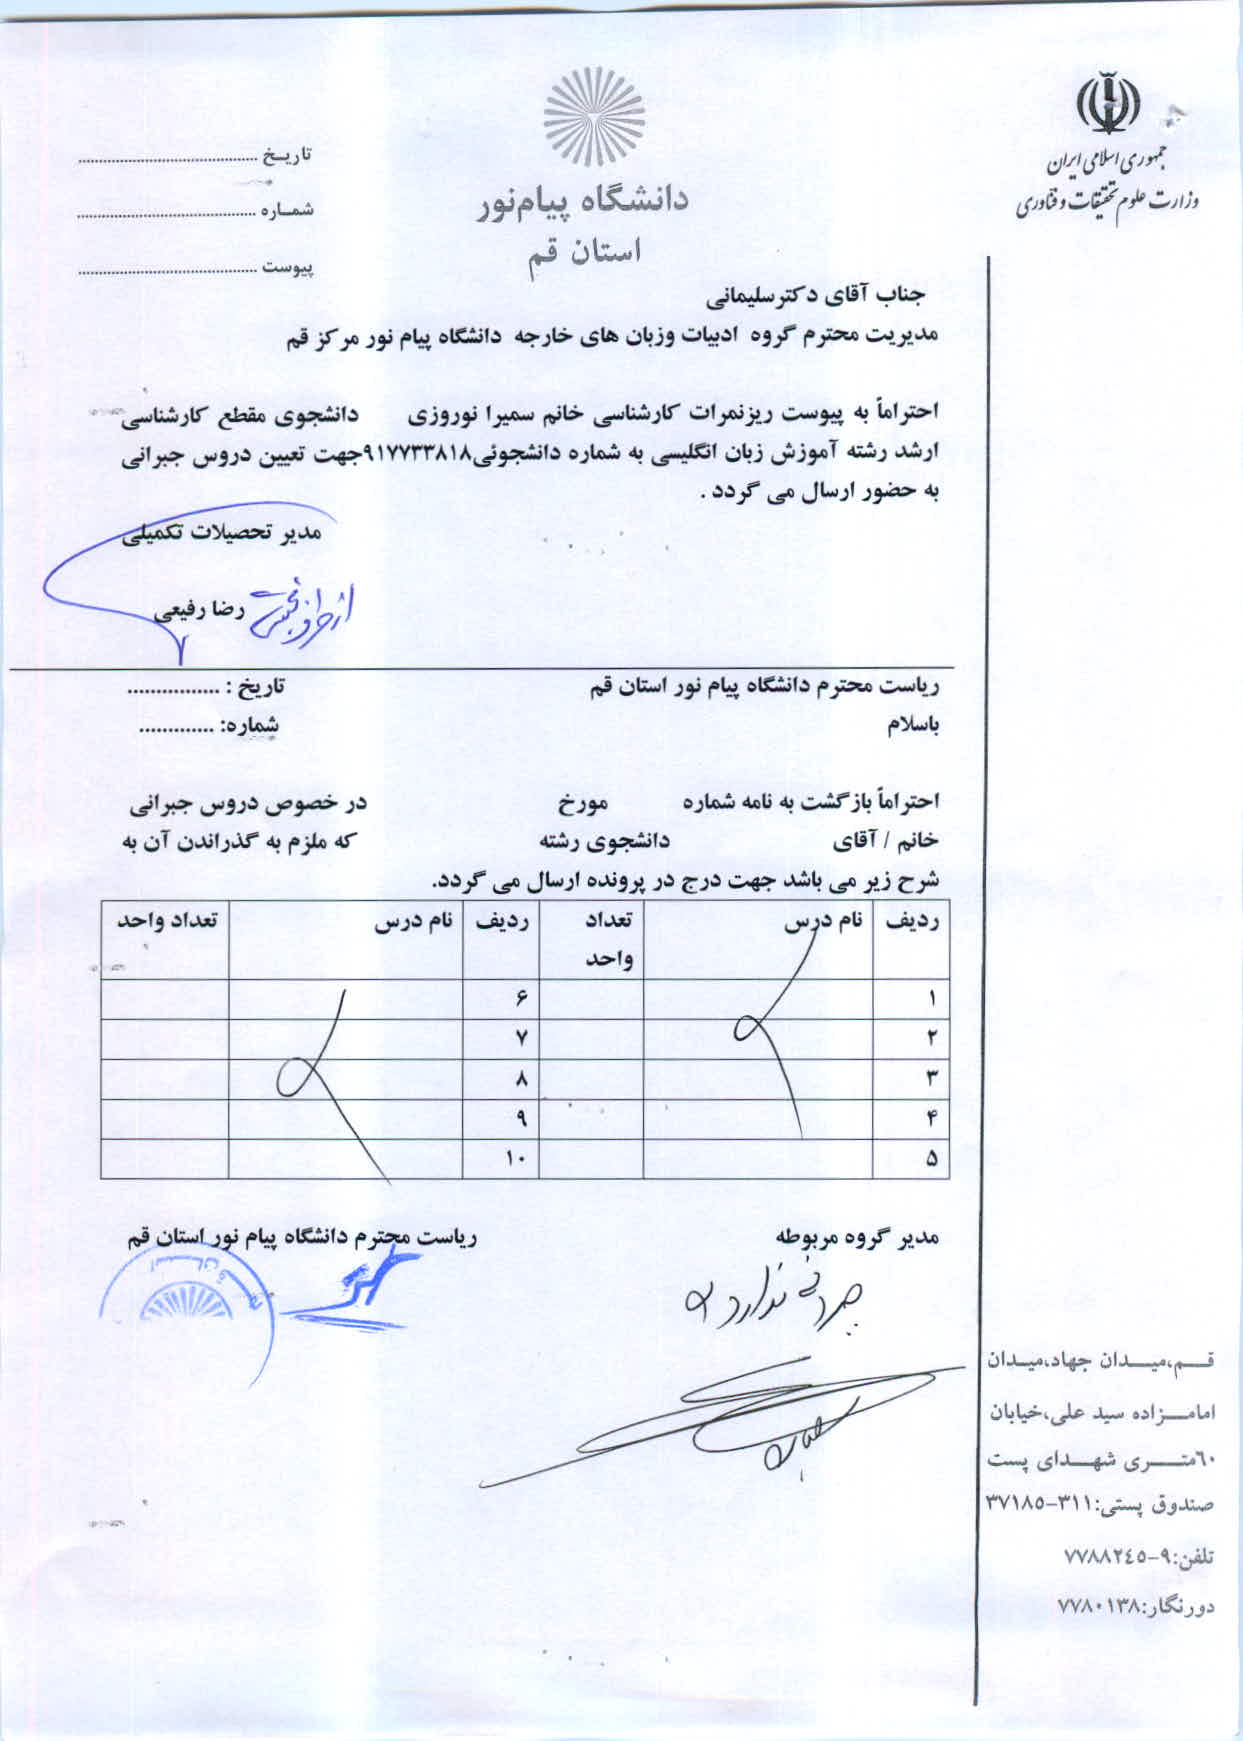 جمهوری اسلامی ایران
وزارت علوم تحقیقات و فناوری
دانشگاه پیام‌نور
استان قم
تاریـخ ........................................
شمـاره ........................................
پیوست ........................................
جناب آقای دکترسلیمانی
مدیریت محترم گروه ادبیات وزبان های خارجه دانشگاه پیام نور مرکز قم
احتراماً به پیوست ریزنمرات کارشناسی خانم سمیرا نوروزی دانشجوی مقطع کارشناسی
ارشد رشته آموزش زبان انگلیسی به شماره دانشجوئی۹۱۷۷۳۳۸۱۸جهت تعیین دروس جبرانی
به حضور ارسال می گردد .
مدیر تحصیلات تکمیلی
رضا رفیعی
از طرف
ریاست محترم دانشگاه پیام نور استان قم
تاریخ : ................
باسلام
شماره: .............
احتراماً بازگشت به نامه شماره مورخ در خصوص دروس جبرانی
خانم / آقای دانشجوی رشته که ملزم به گذراندن آن به
شرح زیر می باشد جهت درج در پرونده ارسال می گردد.
ردیف نام درس تعداد واحد ردیف نام درس تعداد واحد
۱ ۶
۲ ۷
۳ ۸
۴ ۹
۵ ۱۰
مدیر گروه مربوطه
ریاست محترم دانشگاه پیام نور استان قم
ندارد
قـــم،میـــدان جهاد،میـدان
امامـــزاده سید علی،خیابان
٦٠متـــری شهـــدای پست
صندوق پستی:۳۱۱-۳۷۱۸۵
تلفن:۹-۷۷۸۸۲٤۵
دورنگار:۷۷۸۰۱۳۸